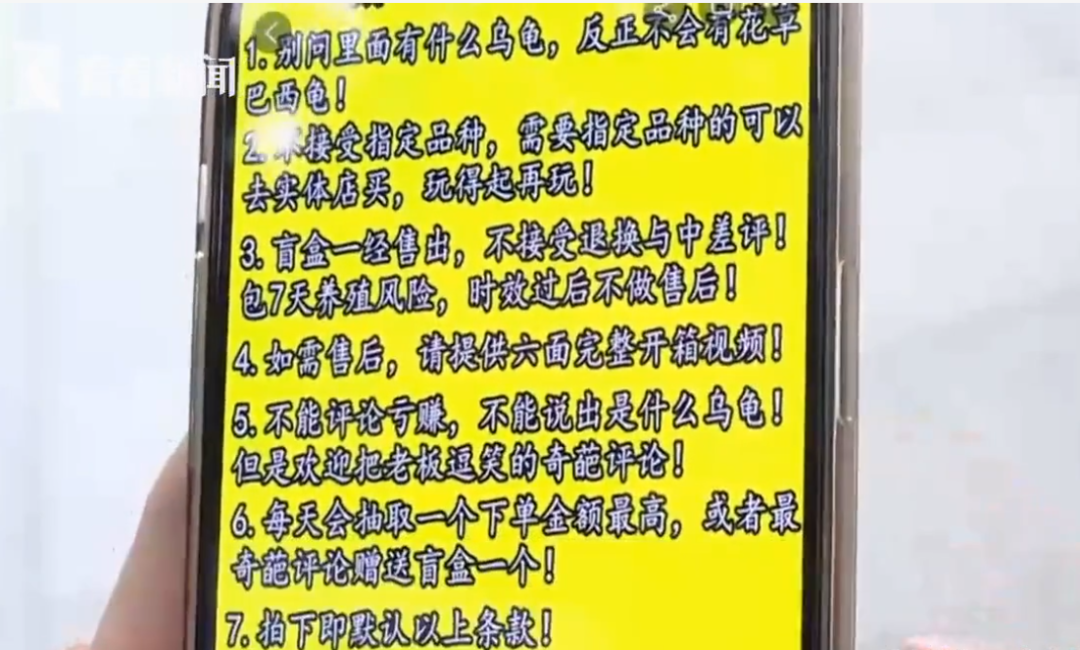 看看新闻
1. 别问里面有什么乌龟，反正不会有花草
巴西龟！
2. 不接受指定品种，需要指定品种的可以
去实体店买，玩得起再玩！
3. 盲盒一经售出，不接受退换与中差评！
包7天养殖风险，时效过后不做售后！
4. 如需售后，请提供六面完整开箱视频！
5. 不能评论亏赚，不能说出是什么乌龟！
但是欢迎把老板逗笑的奇葩评论！
6. 每天会抽取一个下单金额最高，或者最
奇葩评论赠送盲盒一个！
7. 拍下即默认以上条款！